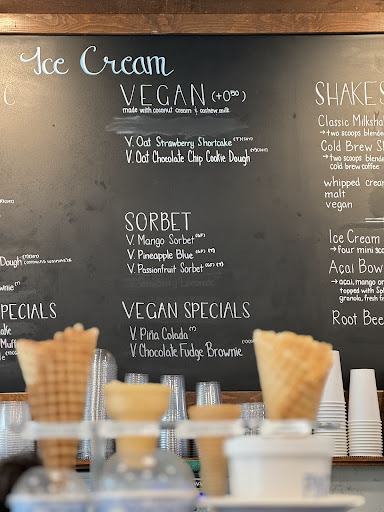 Ice Cream
C
Dough
SPECIALS
VEGAN (+0⁵⁰)
made with coconut cream + cashew milk
V. Oat Strawberry Shortcake
V. Oat Chocolate Chip Cookie Dough
SORBET
V. Mango Sorbet (GF)
V. Pineapple Blue (GF) (T)
V. Passionfruit Sorbet (GF) (T)
VEGAN SPECIALS
V. Piña Colada (T)
V. Chocolate Fudge Brownie
SHAKES
Classic Milksha
→two scoops blende
Cold Brew Sh
→two scoops blende
cold brew coffee
whipped cream
malt
vegan
Ice Cream
→four mini sco
Acai Bow
→acai, mango or
topped with Spl
granola, fresh f
Root Bee